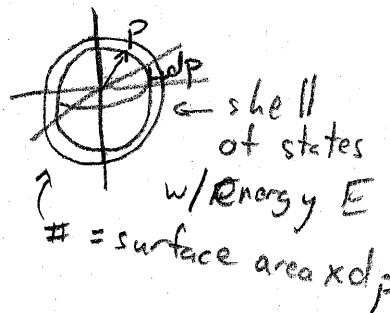 P
dp
← shell
of states
w/ Energy E
# = surface area x dp